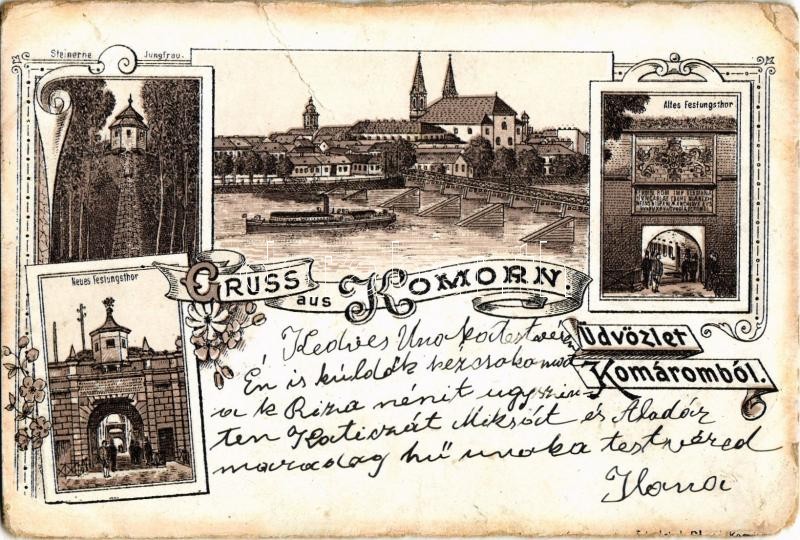 Steinerne Jungfrau.
Altes Festungsthor
Neues Festungsthor
GRUSS aus KOMORN.
Üdvözlet
Komáromból.
Kedves Unokatestvér
Én is küldök kézcsókomat
a k Riza nénit ugyszin
ten Katiczát Miksát és Aladár
maradag hű unoka testvéred
Ilona